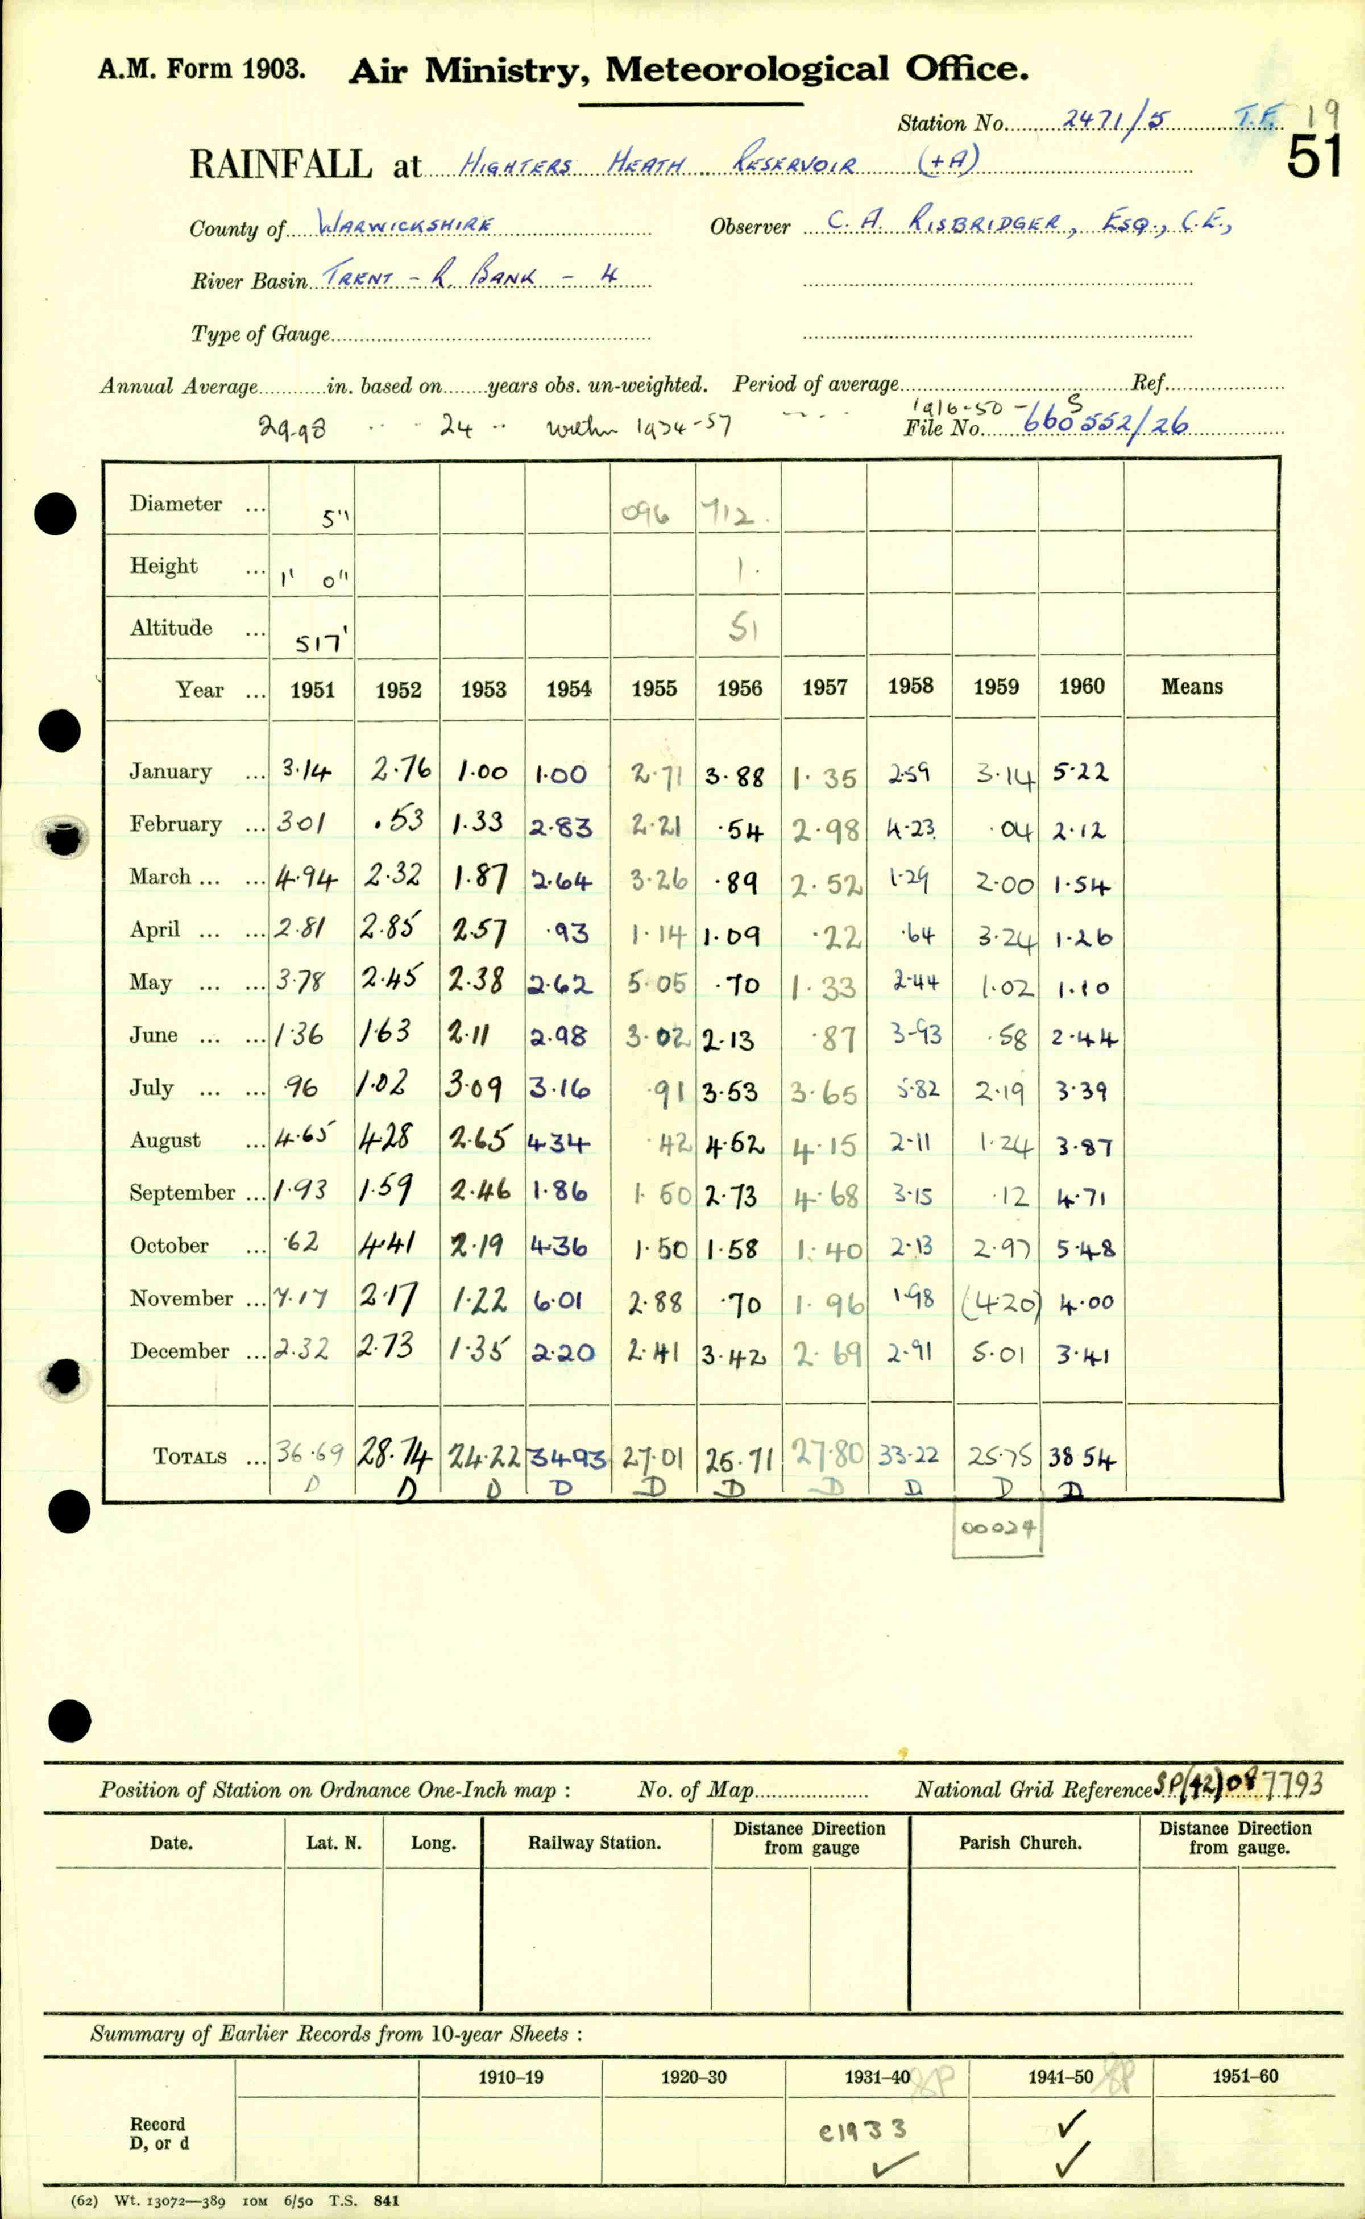 A.M. Form 1903. Air Ministry, Meteorological Office.
Station No. 2471/5 T.F. 19
RAINFALL at HIGHTERS HEATH RESERVOIR (+A) 51
County of WARWICKSHIRE Observer C. A. RISBRIDGER, ESQ., C.E.,
River Basin TRENT - R. BANK - 4
Type of Gauge
Annual Average in. based on years obs. un-weighted. Period of average Ref.
29.98 24 within 1934-57 1916-50 - S
File No. 660552/26
Diameter ... 5" 096 712.
Height ... 1' 0" 1.
Altitude ... 517' 51
Year ... 1951 1952 1953 1954 1955 1956 1957 1958 1959 1960 Means
January ... 3.14 2.76 1.00 1.00 2.71 3.88 1.35 2.59 3.14 5.22
February ... 3.01 .53 1.33 2.83 2.21 .54 2.98 4.23 .04 2.12
March ... ... 4.94 2.32 1.87 2.64 3.26 .89 2.52 1.29 2.00 1.54
April ... ... 2.81 2.85 2.57 .93 1.14 1.09 .22 .64 3.24 1.26
May ... ... 3.78 2.45 2.38 2.62 5.05 .70 1.33 2.44 1.02 1.10
June ... ... 1.36 1.63 2.11 2.98 3.02 2.13 .87 3.93 .58 2.44
July ... ... .96 1.02 3.09 3.16 .91 3.53 3.65 5.82 2.19 3.39
August ... 4.65 4.28 2.65 4.34 .42 4.52 4.15 2.11 1.24 3.87
September ... 1.93 1.59 2.46 1.86 1.50 2.73 4.68 3.15 .12 4.71
October ... .62 4.41 2.19 4.36 1.50 1.58 1.40 2.13 2.97 5.48
November ... 7.17 2.17 1.22 6.01 2.88 .70 1.96 1.98 (4.20) 4.00
December ... 2.32 2.73 1.35 2.20 2.41 3.42 2.69 2.91 5.01 3.41
TOTALS ... 36.69 28.74 24.22 34.93 27.01 25.71 27.80 33.22 25.75 38.54
D D D D D D D D D D
Position of Station on Ordnance One-Inch map : No. of Map National Grid Reference SP(42)087793
Date. Lat. N. Long. Railway Station. Distance from gauge Direction Parish Church. Distance from gauge. Direction
Summary of Earlier Records from 10-year Sheets :
1910–19 1920–30 1931–40 SP 1941–50 SP 1951–60
Record D, or d c1933 ✓ ✓ ✓
(62) Wt. 13072—389 10M 6/50 T.S. 841